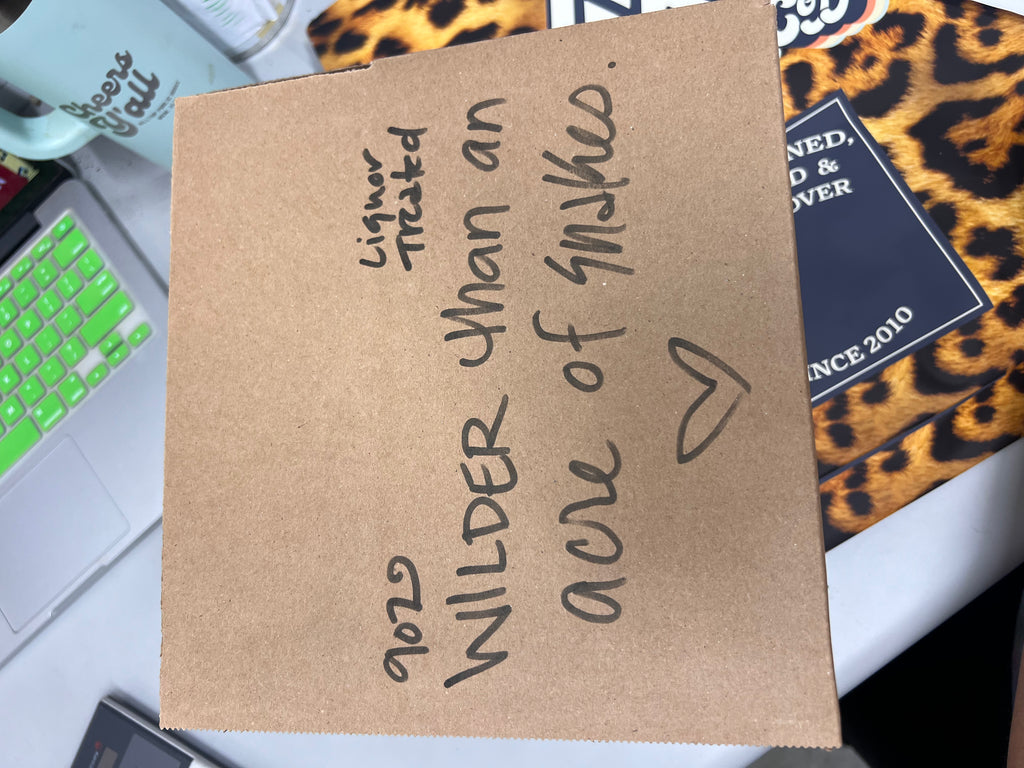 Cheers
Y'all
Liquor
Treated
9020
WILDER than an
acre of snakes.
NED,
D &
OVER
INCE 2010